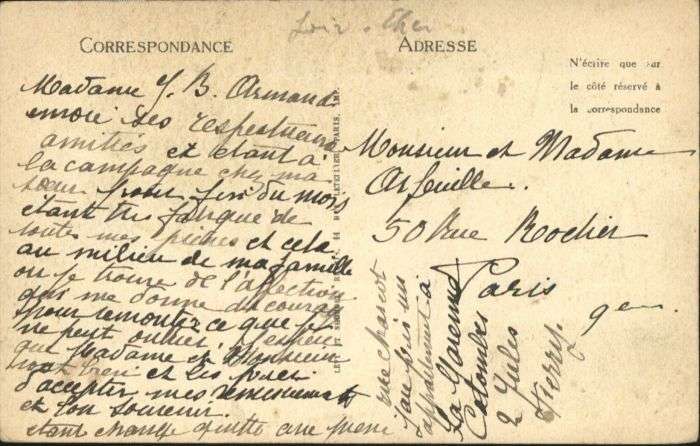 Loir-Cher
CORRESPONDANCE
ADRESSE
N'écrire que sur
le côté réservé à
la correspondance
Madame J. B. Armand
envoie ses respectueuses
amitiés et étant à
la campagne chez ma
soeur pour fin du mois
étant très fatiguée de
toutes mes et cela
au milieu de ma famille
où je trouve de l'affection
qui me donne du courage
pour remonter ce que je
ne peut oublier
que Madame et Monsieur
vont bien et les prier
d'accepter mes remerciements
et bon souvenir.
étant changé quitté
Monsieur et Madame
Arfeuille.
50 Rue Rocher
Paris
9em
rue chariot
j'au pris un
appartement à
La Garenne
Colombes
2 Jules
Fierry